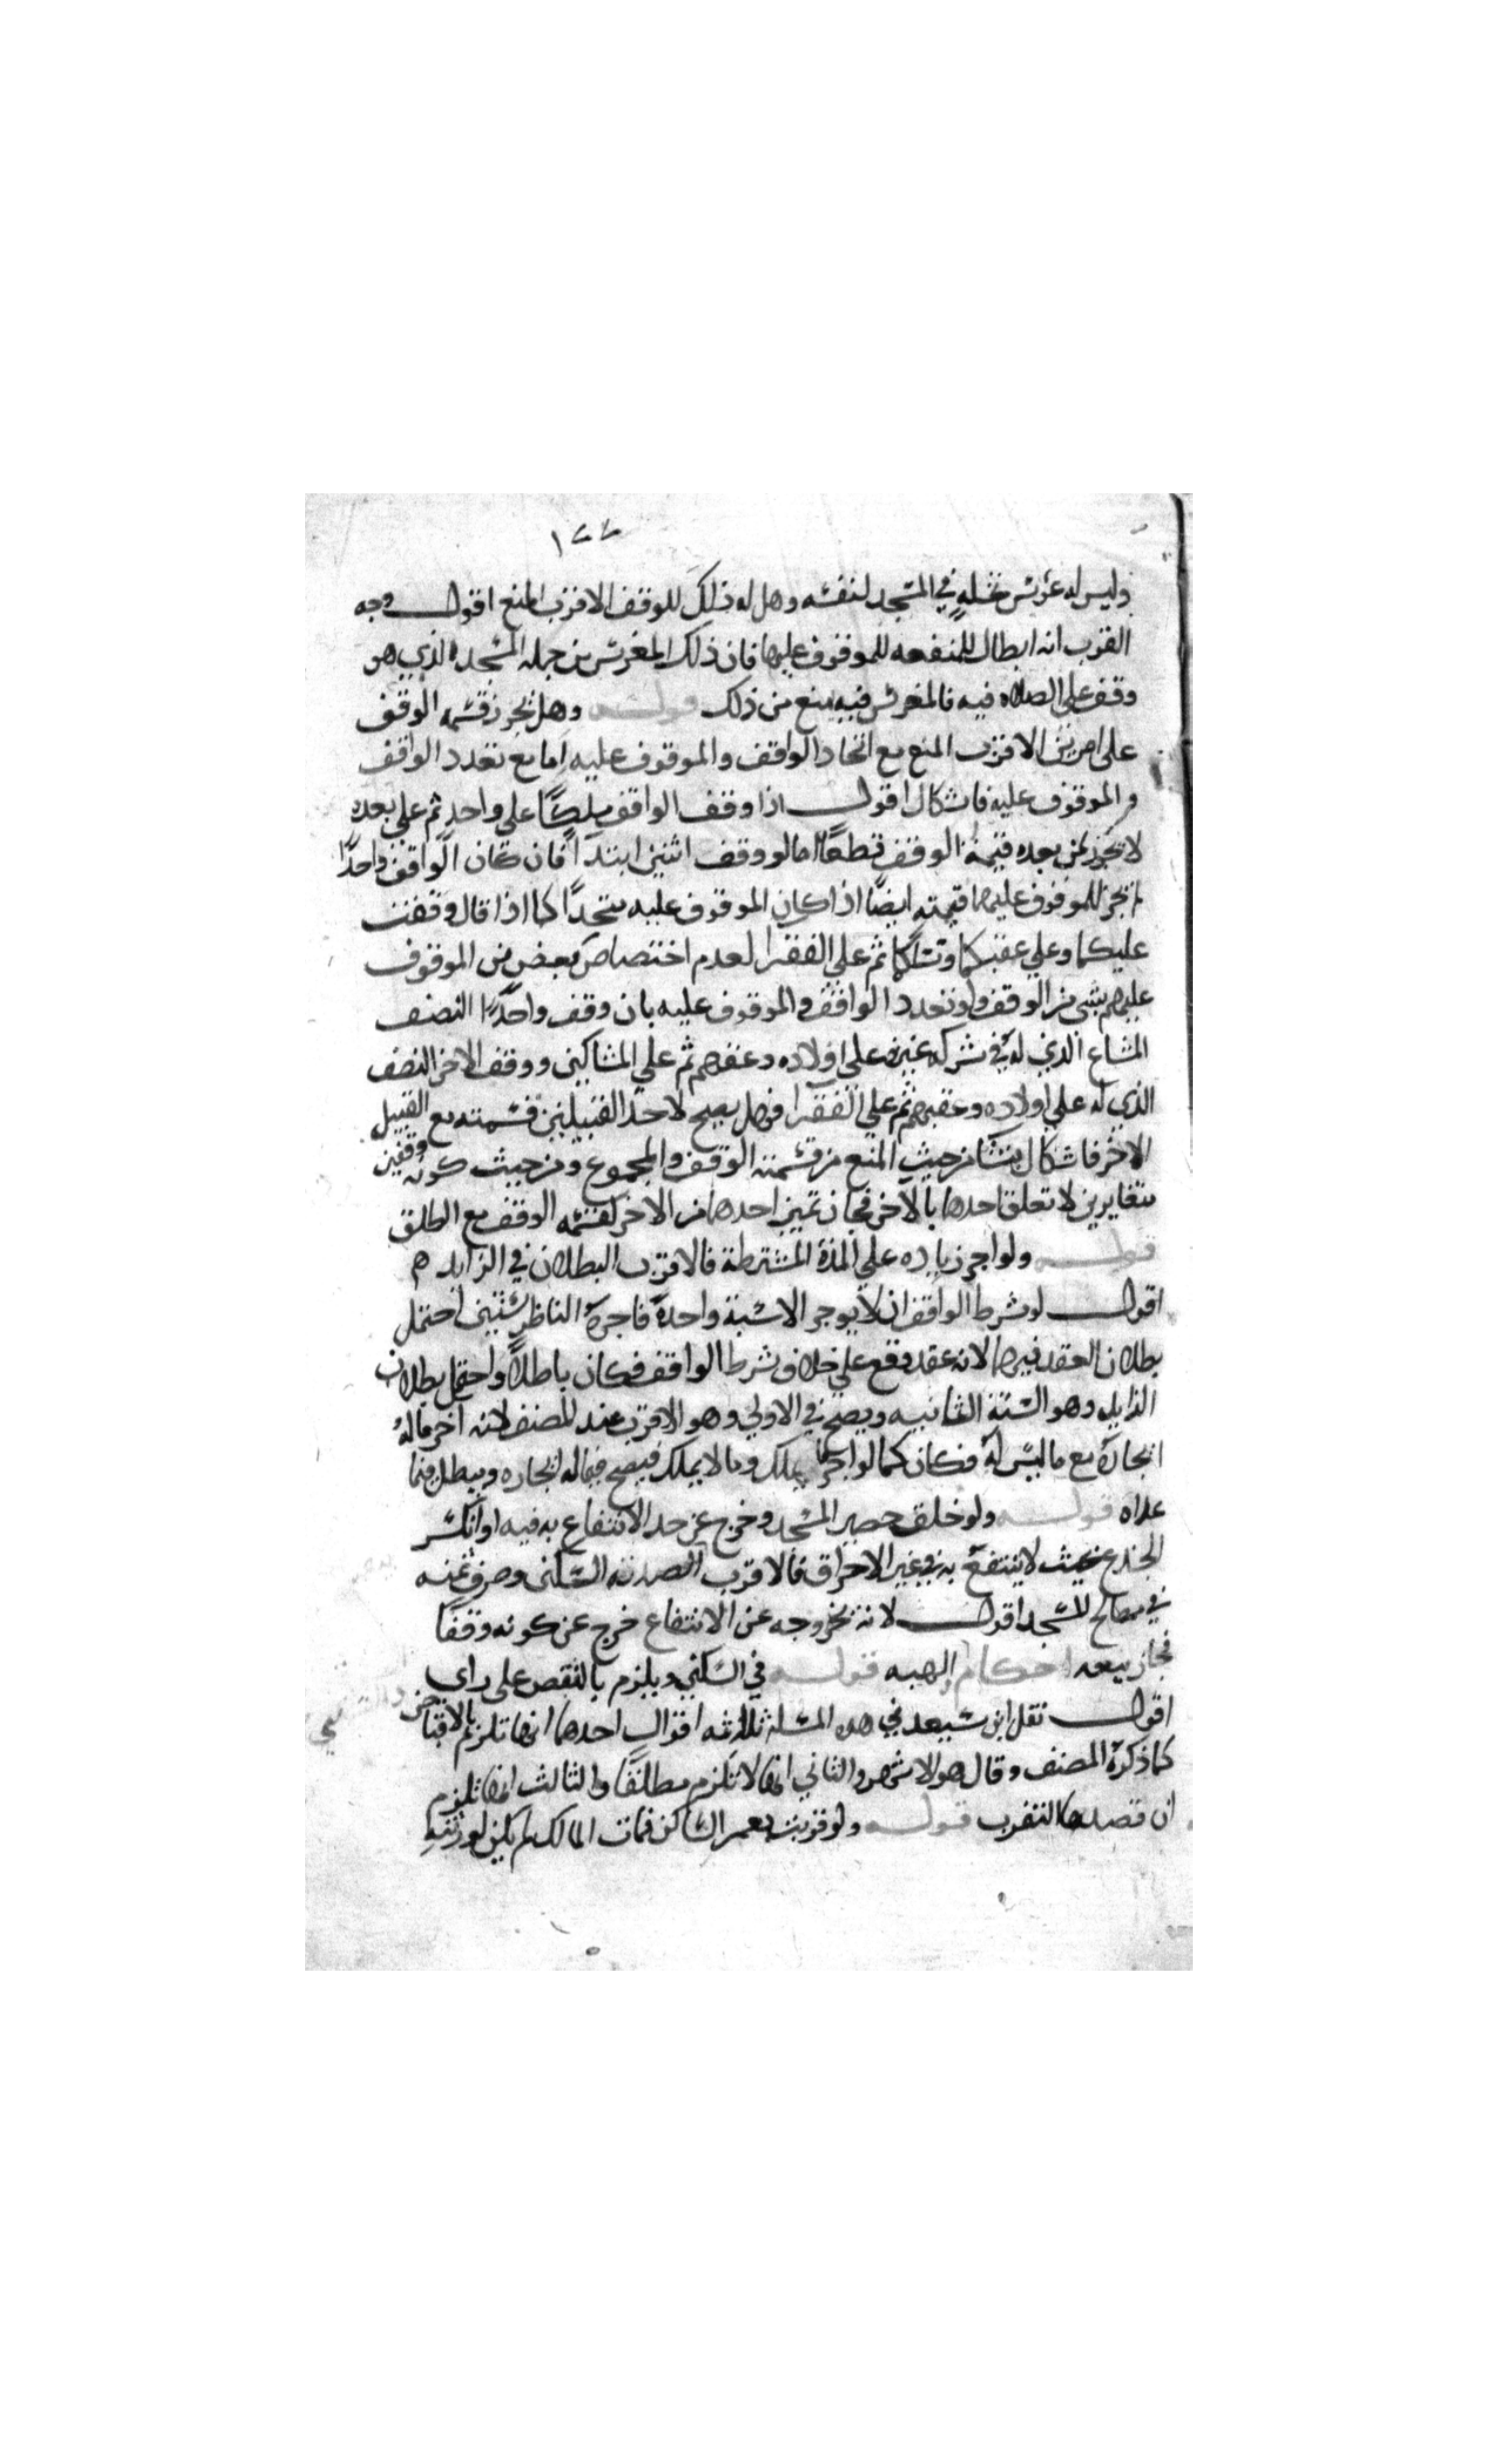 ١٧٧
وليس له غرس نخله في المسجد لنفسه وهل له ذلك للوقف الاقرب المنع اقول وجه
القرب انه ابطال للمنفعه للموقوف عليها فان ذلك المغرس من جمله المسجد الذي هو
وقف على الصلاه فيه فالمغرس فيه يمنع من ذلك قوله وهل يجوز قسمه الوقف
على الاقرب المنع مع اتحاد الواقف والموقوف عليه اما مع تعدد الواقف
والموقوف عليه فاشكال اقول اذا وقف الواقف ملكا على واحد ثم على بعده
لا يجوز لمن بعده قسمة الوقف قطعا اما لو وقف اثنين ابتدآ فان كان الواقف واحدا
لم يجز للموقوف عليهما قسمته ايضا اذا كان الموقوف عليه متحدا كما اذا قال وقفت
عليكما وعلى عقبكما ثم على الفقرا لعدم اختصاص بعض من الموقوف
عليهم بشي من الوقف ولو تعدد الواقف والموقوف عليه بان وقف واحد النصف
المشاع الذي له في شركه غيره على اولاده وعقبهم ثم على المساكين ووقف الاخر النصف
الذي له على اولاده وعقبهم ثم على الفقرا فهل يصح لاحد القبيلين قسمته مع القبيل
الاخر فاشكال ينشا من حيث المنع من قسمة الوقف والمجموع ومن حيث كونه وقفين
متغايرين لا تعلق احدهما بالآخر فجاز تميز احدهما من الاخر كقسمه الوقف مع الطلق
قوله ولو اجر زياده على المدة المشترطة فالاقرب البطلان في الزايد
اقول لو شرط الواقف ان لا يوجر الا سنة واحدة فاجره الناظر سنتين احتمل
بطلان العقد فيهما لانه عقد وقع على خلاف شرط الواقف فكان باطلا واحتمل بطلان
الزايد وهو السنة الثانيه ويصح في الاولى وهو الاقرب عند المصنف لانه اجر ماله
اجارة مع ما ليس له فكان كما لو اجر ما يملك وما لا يملك فيصح فيما له اجاره ويبطل فيما
عداه قوله ولو خلق حصير المسجد وخرج عن حد الانتفاع به فيه او انكسر
الجذع بحيث لا ينتفع به في غير الاحراق فالاقرب وصرف ثمنه
في مصالح المسجد اقول لانه بخروجه عن الانتفاع خرج عن كونه وقفا
فجاز بيعه احكام الهبه قوله في السكنى ويلزم بالقبض على راي
اقول نقل ابن سعيد في هذه المسله ثلاثه اقوال احدها انها تلزم بالاقباض
كما ذكره المصنف وقال هو الاشهر والثاني انها لا تلزم مطلقا والثالث انها تلزم
ان قصد بها التقرب قوله ولو قرنت بعمر الساكن فمات المالك لم يكن لورثته